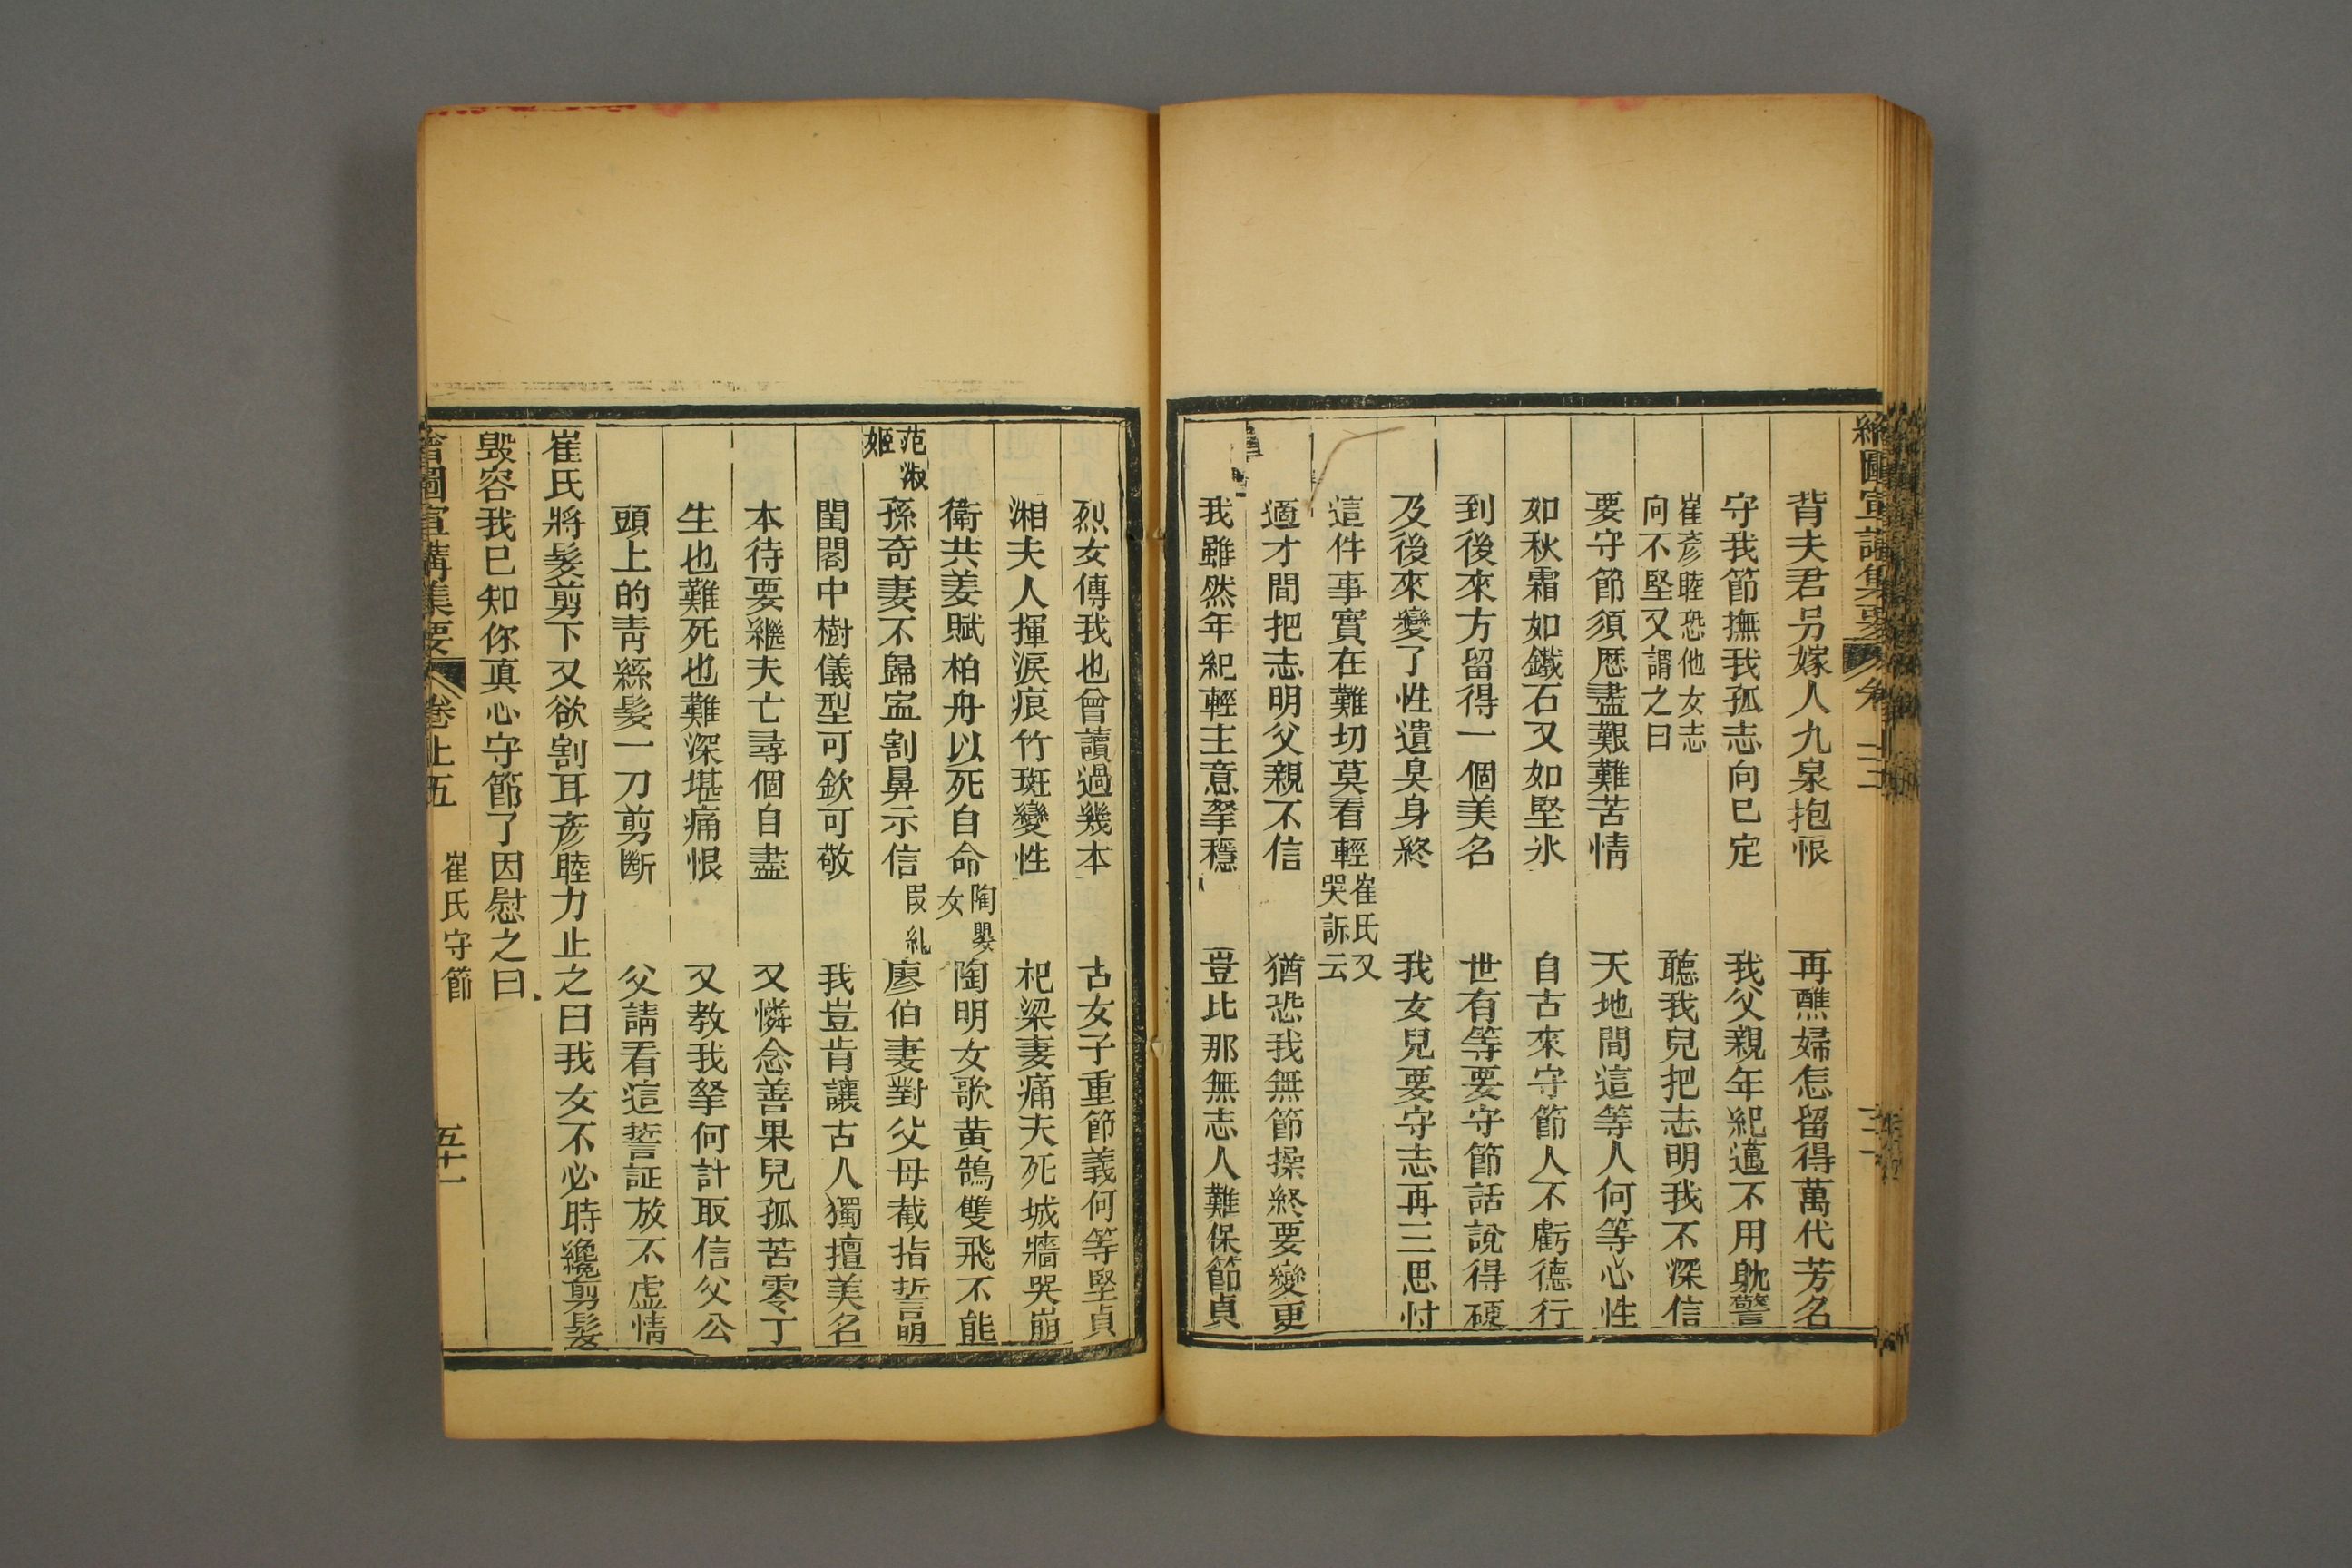 繪圖宣講集要
背夫君另嫁人九泉抱恨 再醮婦怎留得萬代芳名
守我節撫我孤志向已定 我父親年紀邁不用躭警
崔彥睦恐他女志
向不堅又謂之曰 聽我兒把志明我不深信
要守節須歷盡艱難苦情 天地間這等人何等心性
如秋霜如鐵石又如堅氷 自古來守節人不虧德行
到後來方留得一個美名 世有等要守節話說得硬
及後來變了性遺臭身終 我女兒要守志再三思忖
這件事實在難切莫看輕 崔氏又
哭訴云
適才間把志明父親不信 猶恐我無節操終要變更
我雖然年紀輕主意拏穩 豈比那無志人難保節貞
烈女傳我也曾讀過幾本 古女子重節義何等堅貞
湘夫人揮淚痕竹斑變性 杞梁妻痛夫死城牆哭崩
衛共姜賦柏舟以死自命 陶嬰
女 陶明女歌黃鵠雙飛不能
范淑
姬 孫奇妻不歸寍割鼻示信 叚糺 廖伯妻對父母截指誓明
閨閣中樹儀型可欽可敬 我豈肯讓古人獨擅美名
本待要繼夫亡尋個自盡 又憐念善果兒孤苦零丁
生也難死也難深堪痛恨 又教我拏何計取信父公
頭上的靑絲髮一刀剪斷 父請看這誓証放不虛情
崔氏將髮剪下又欲割耳彥睦力止之曰我女不必時纔剪髮
毀容我已知你眞心守節了因慰之曰
繪圖宣講集要 卷上五 崔氏守節 五十一